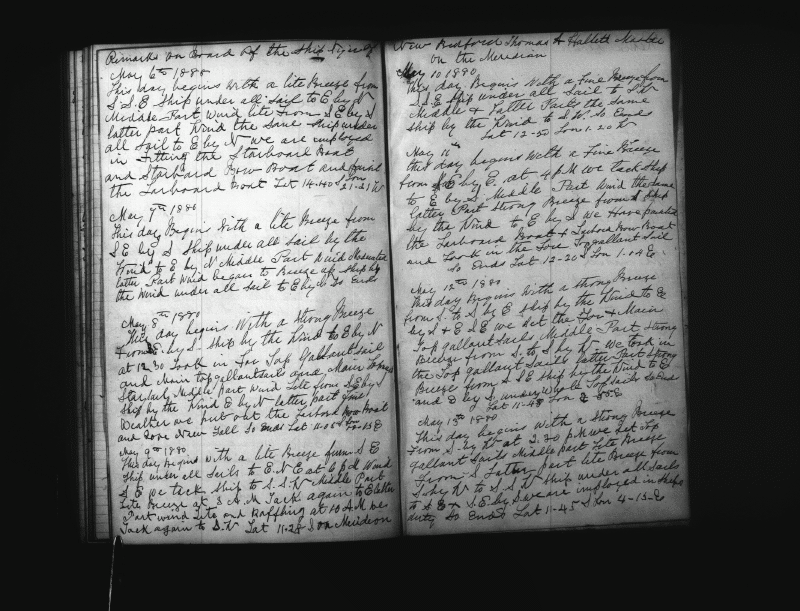 Remarks on Board of the Ship
May 6th 1880
This day begins With a lite Breeze from
S.S.E Ship under all sail to E by N
Middle Part Wind lite from S E by S
latter part Wind the same Ship under
all sail to E by N we are imployed
in Fitting the Starboard Boat
and Starboard Bow Boat and
the Larboard Boat Lat 14-40 S Lon 21-21 W
May 7th 1880
This day Begins With a lite Breeze from
S E by S. Ship under all sail by the
Wind to E by N Middle Part Wind Moderate
latter Part Wind began to Breeze up Ship by
the Wind under all sail to E by N So Ends
May 8th 1880
This day begins With a Strong Breeze
From E by S. Ship by the Wind to E by N
at 12.30 Took in Fore Top Gallantsail
and Main topgallantsail and Main
Middle Part Wind Lite from S E by S
Ship by the Wind E by N latter part fine
Weather we put out the Larbord Bow Boat
and New Fall So Ends Lat 11-05 S
May 9th 1880
This day Begins With a lite Breeze from S E
Ship under all Sails to E. N E at 6 P M Wind
S E we tack Ship to S.S.W Middle Part
Lite Breeze at 3 A.M Tack again to E latter
Part wind Lite and Baffling at 10 A.M we
Tack again to S.W Lat 11-28 S on Meridean
New Bedford Thomas H Hallett Master
on the Meridian
May 10 1880
This day Begins With a Fine Breeze from
S.S E Ship under all sail to S W
Middle & Latter Parts the same
Ship by the Wind to S.W. So Ends
Lat 12-50 Lon 1.20 W
May 11th
this day begins With a Fine Breeze
from S E by E. at 4 P M we tack Ship
to E by S. Middle Part Wind the same
Latter Part Strong Breeze from S Ship
by the Wind to E by S we Have painted
the Larboard Boat & Larbord Bow Boat
and Took in the Fore Topgallant Sail
So Ends Lat 12-20 S Lon 1.04 E
May 12th 1880
This day Begins With a strong Breeze
from S. to S by E Ship by the Wind to E
by S & E S E we Set the Fore & Main
Top gallant Sails Middle Part Strong
Breeze from S. to S by W. we took in
the Top gallant Sails latter Part Strong
Breeze from S S E Ship by the Wind to E
and E by S. under Whole Topsails So Ends
Lat 11-48 Lon
May 13th 1880
This day begins With a Strong Breeze
From S. by W at 2.30 P M we Set Top
gallant Sails Middle part Lite Breeze
From S Latter Part lite Breeze from
S. by W to S.S W Ship under all Sails
to S E & S.E. by S we are imployed in Ships
duty So Ends Lat 11-45 S Lon 4-15-E